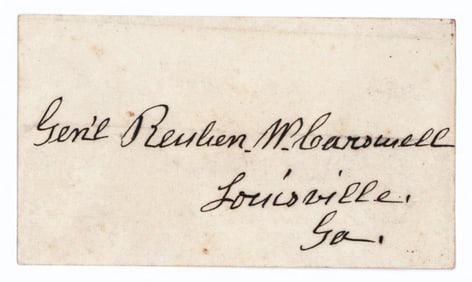 Gen'l Reuben W. Carswell
Louisville.
Ga.